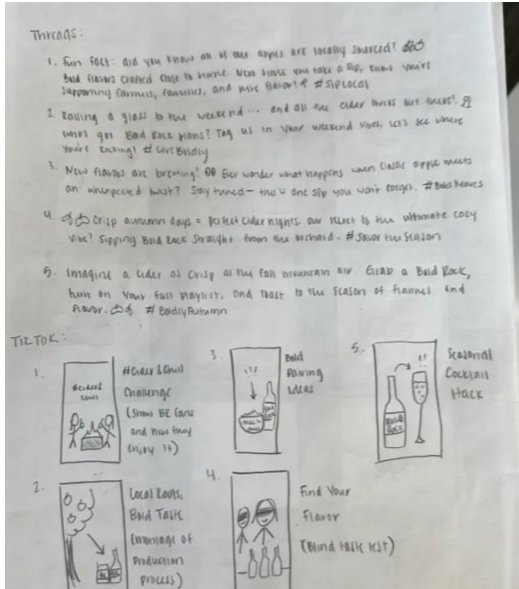 Threads:
1. Fun fact: did you know all of our apples are locally sourced?
Bold flavors crafted close to home. Next time you take a sip, know you're
supporting farmers, families, and pure flavor! #SipLocal
2. Raising a glass to the weekend... and all the cider lovers out there!
Who's got Bold Rock plans? Tag us in your weekend vibes, let's see where
you're Rocking! #LiveBoldly
3. New flavors are brewing! Ever wonder what happens when classic apple meets
an unexpected twist? Stay tuned - this is one sip you won't forget. #Bold
4. Crisp autumn days = perfect cider nights. Our secret to the ultimate cozy
vibe? Sipping Bold Rock straight from the orchard. #SavorTheSeason
5. Imagine a cider as crisp as the fall mountain air. Grab a Bold Rock,
turn on your fall playlist, and toast to the season of flannel and
flavor. #BoldlyAutumn
TikTok:
1.
#Cider&Chill
Challenge
(Show BR fans
and how they
enjoy it)
2.
Local Roots,
Bold Taste
(montage of
production
process)
3.
Bold
Pairing
Ideas
BOLD
ROCK
4.
Find Your
Flavor
(Blind taste test)
5.
Seasonal
Cocktail
Hack